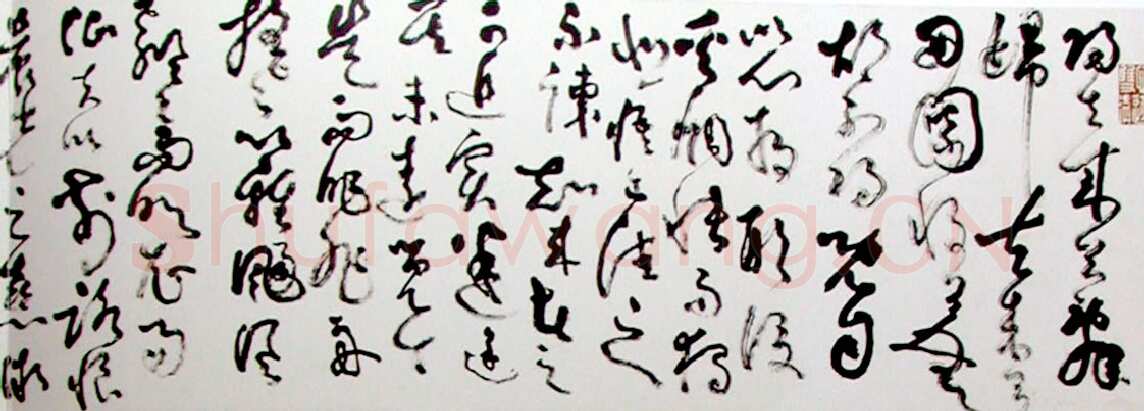 歸去來兮辭
歸去來兮
田園將蕪
胡不歸既自
以心為形役
奚惆悵而獨
悲悟已往之
不諫知來者之
可追實迷途
其未遠覺今
是而昨非舟
搖搖以輕颺風
飄飄而吹衣問
征夫以前路恨
晨光之熹微
Shufawang.CN